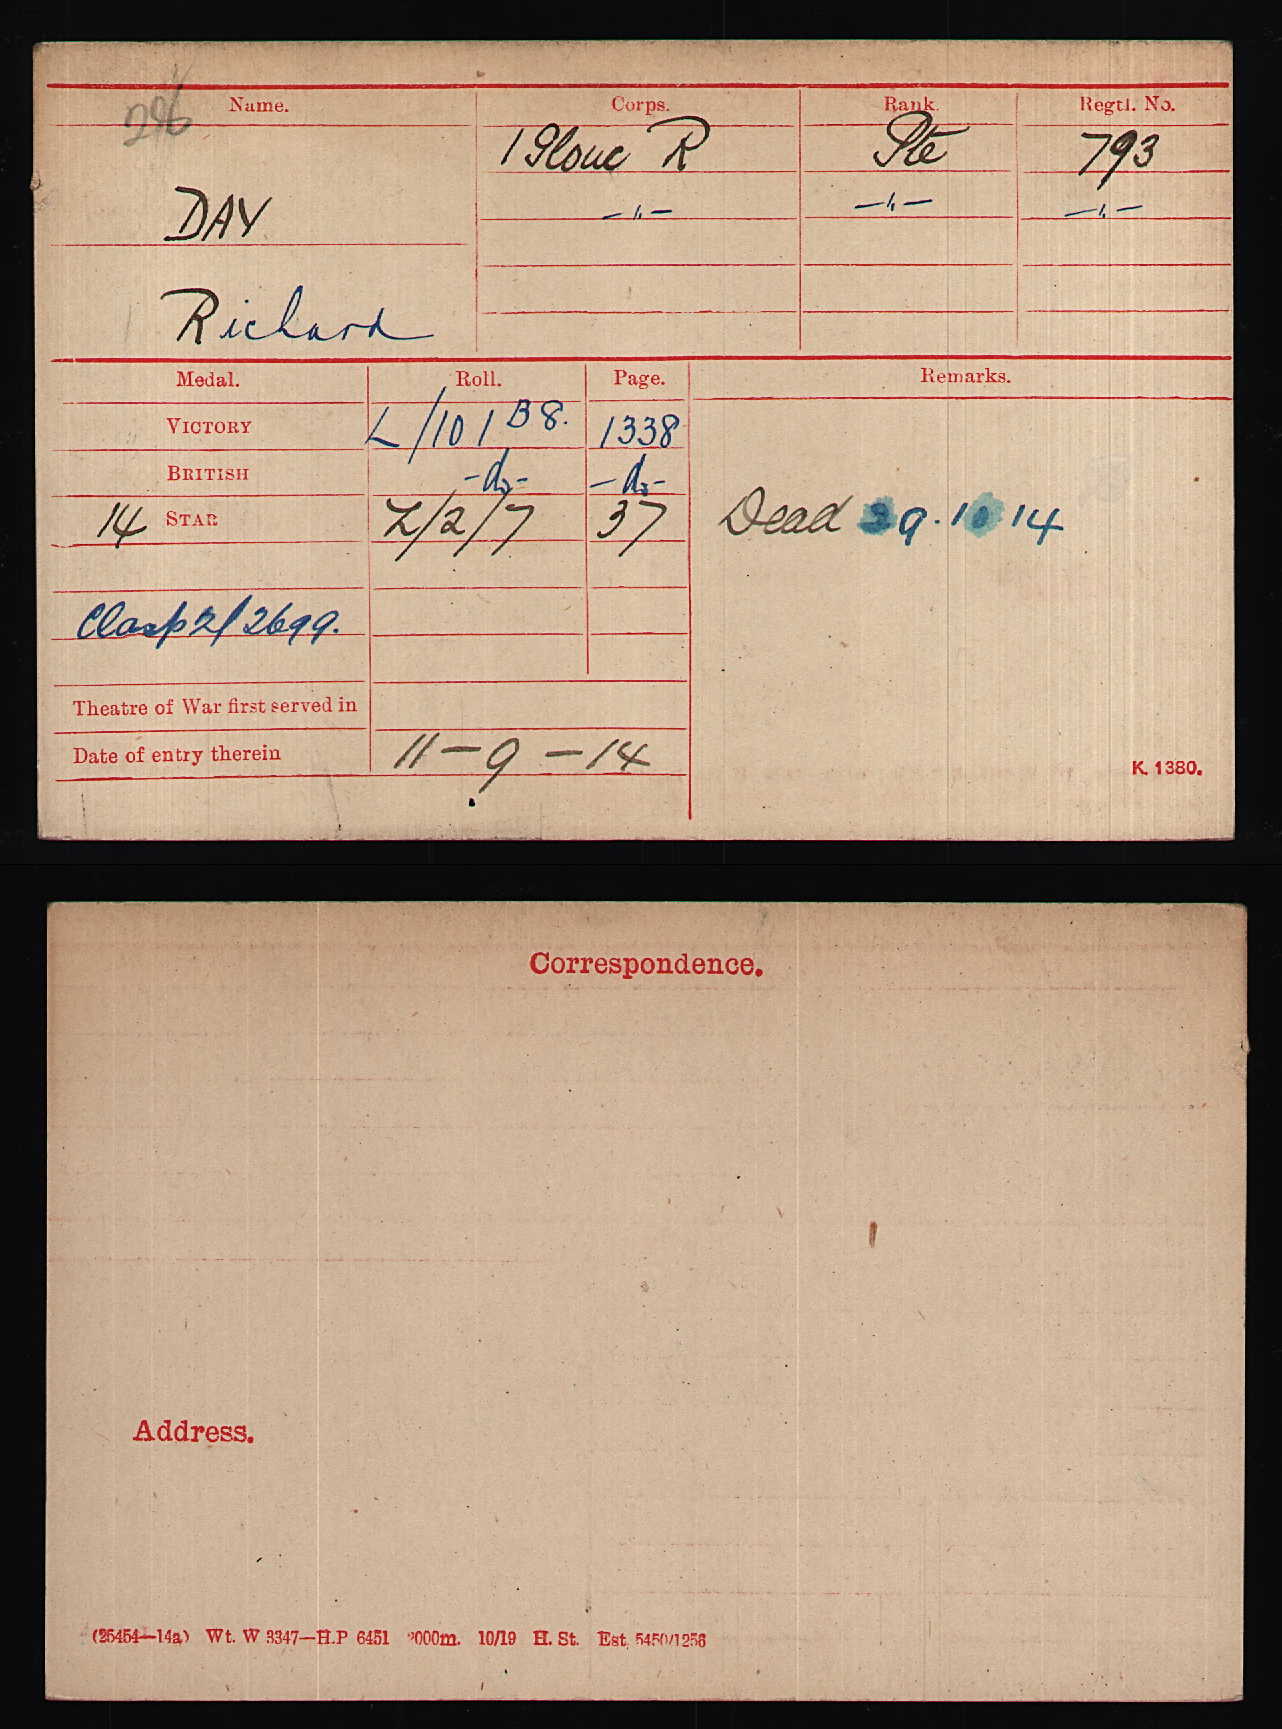 296
Name. Corps. Rank. Regtl. No.
1 Glouc R Pte 793
DAY -"- -"- -"-
Richard
Medal. Roll. Page. Remarks.
VICTORY L/101 B8. 1338
BRITISH -do- -do-
14 STAR Z/2/7 37 Dead 29.10 14
Clasp 2/2699.
Theatre of War first served in
Date of entry therein 11-9-14
K. 1380.
Correspondence.
Address.
(26454—14a) Wt. W 3347—H.P 6451 2000m. 10/19 H. St. Est. 5450/1256